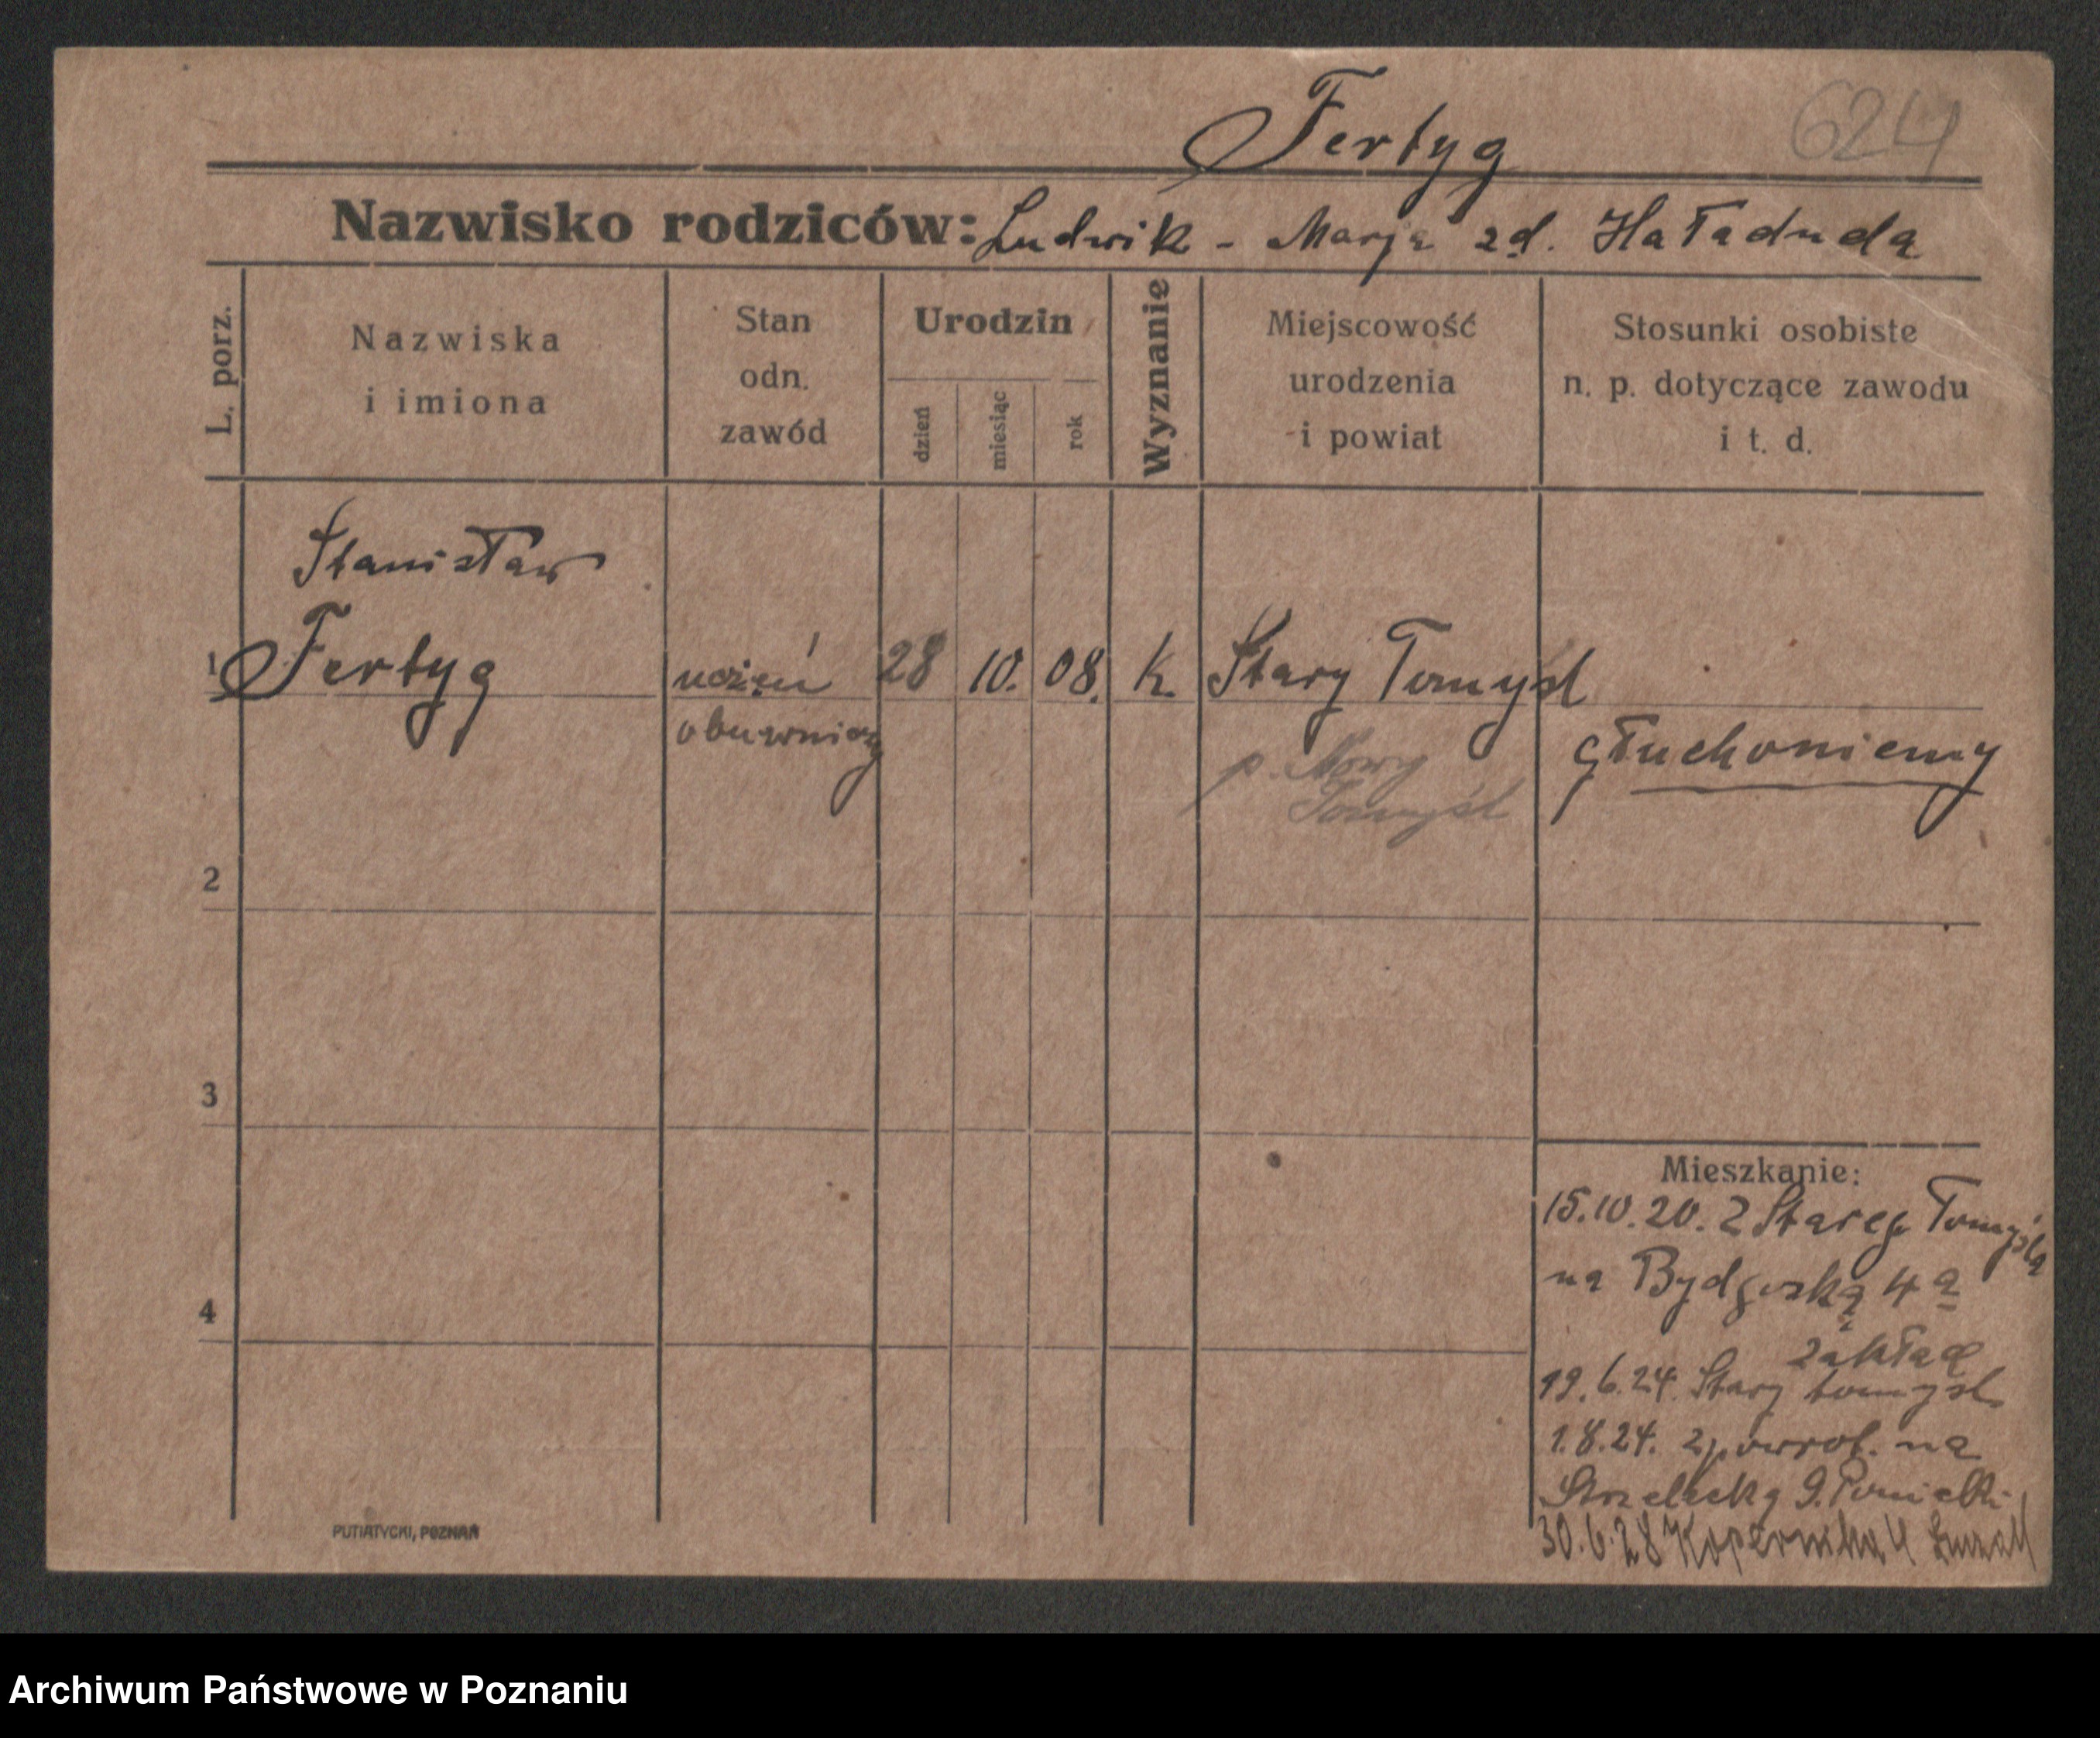 Fertyg
624
Nazwisko rodziców: Ludwik - Marja zd. Haładuda
L. porz.
Nazwiska
i imiona
Stan
odn.
zawód
Urodzin
dzień
miesiąc
rok
Wyznanie
Miejscowość
urodzenia
i powiat
Stosunki osobiste
n. p. dotyczące zawodu
i t. d.
Stanisław
1 Fertyg
uczeń 28 10. 08. k. Stary Tomyśl
obuwniczy
p. Nowy
Tomyśl
głuchoniemy
2
3
4
Mieszkanie:
15.10.20. Z Starego Tomyśla
na Bydgoską 4a
zakład
19.6.24. Stary tomysl
1.8.24. zpowrot. na
Strzelecką 9.
30.6.28 Kopernika 4
PUTIATYCKI, POZNAŃ
Archiwum Państwowe w Poznaniu